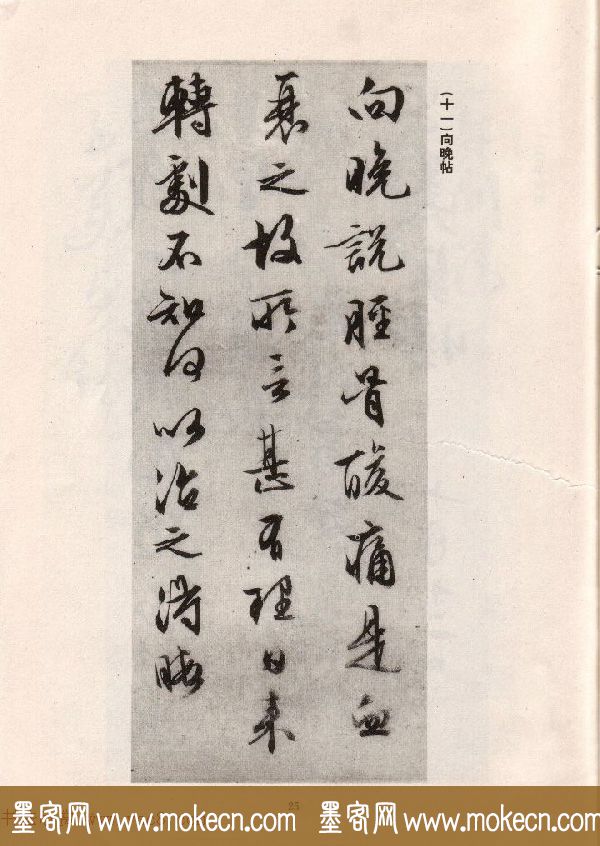 (十一)向晚帖
向晚說脛骨酸痛是血
衰之故所言甚有理日来
轉劇不知何以治之
25
墨客网 www.mokecn.com 墨客网 www.mokecn.com